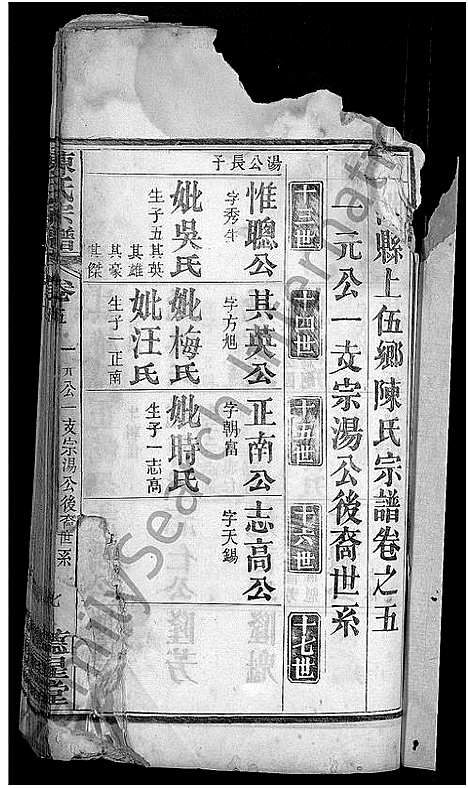 縣上伍鄉陳氏宗譜卷之五
一元公一支宗湯公後裔世系
十三世
十四世
十五世
十六世
十七世
湯公長子
惟聰公
字秀生
妣吳氏
生子五其英
其雄
其豪
其傑
其英公
字方旭
妣梅氏
妣汪氏
生子一正南
正南公
字朝富
妣時氏
生子一志高
志高公
字天錫
陳氏宗譜
卷五
一元公一支宗湯公後裔世系
七
德星堂
FamilySearch